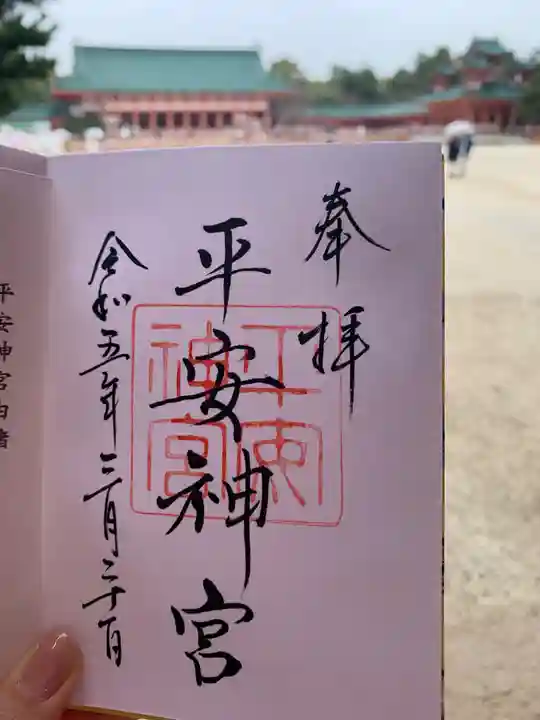 奉拝
平安神宮
令和五年三月二十日
平安神宮
平安神宮由緒